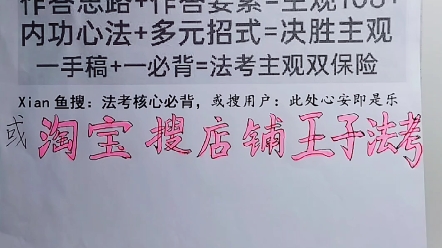 作答思路+作答要素=主观108+
内功心法+多元招式=决胜主观
一手稿+一必背=法考主观双保险
Xian 鱼搜：法考核心必背，或搜用户：此处心安即是乐
或淘宝搜店铺王子法考